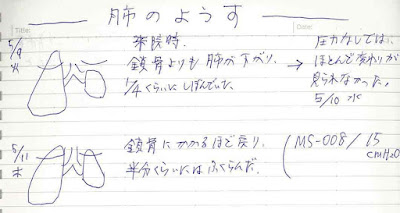 肺のようす
5/9
火
来院時.
鎖骨よりも肺が下がり,
1/4くらいにしぼんでいた.
→
圧力なしでは,
ほとんど変わりが
見られなかった.
5/10 水
5/11
木
鎖骨にかかるほど戻り,
半分くらいにはふくらんだ.
(MS-008/15
cmH2O
Title:
Date: